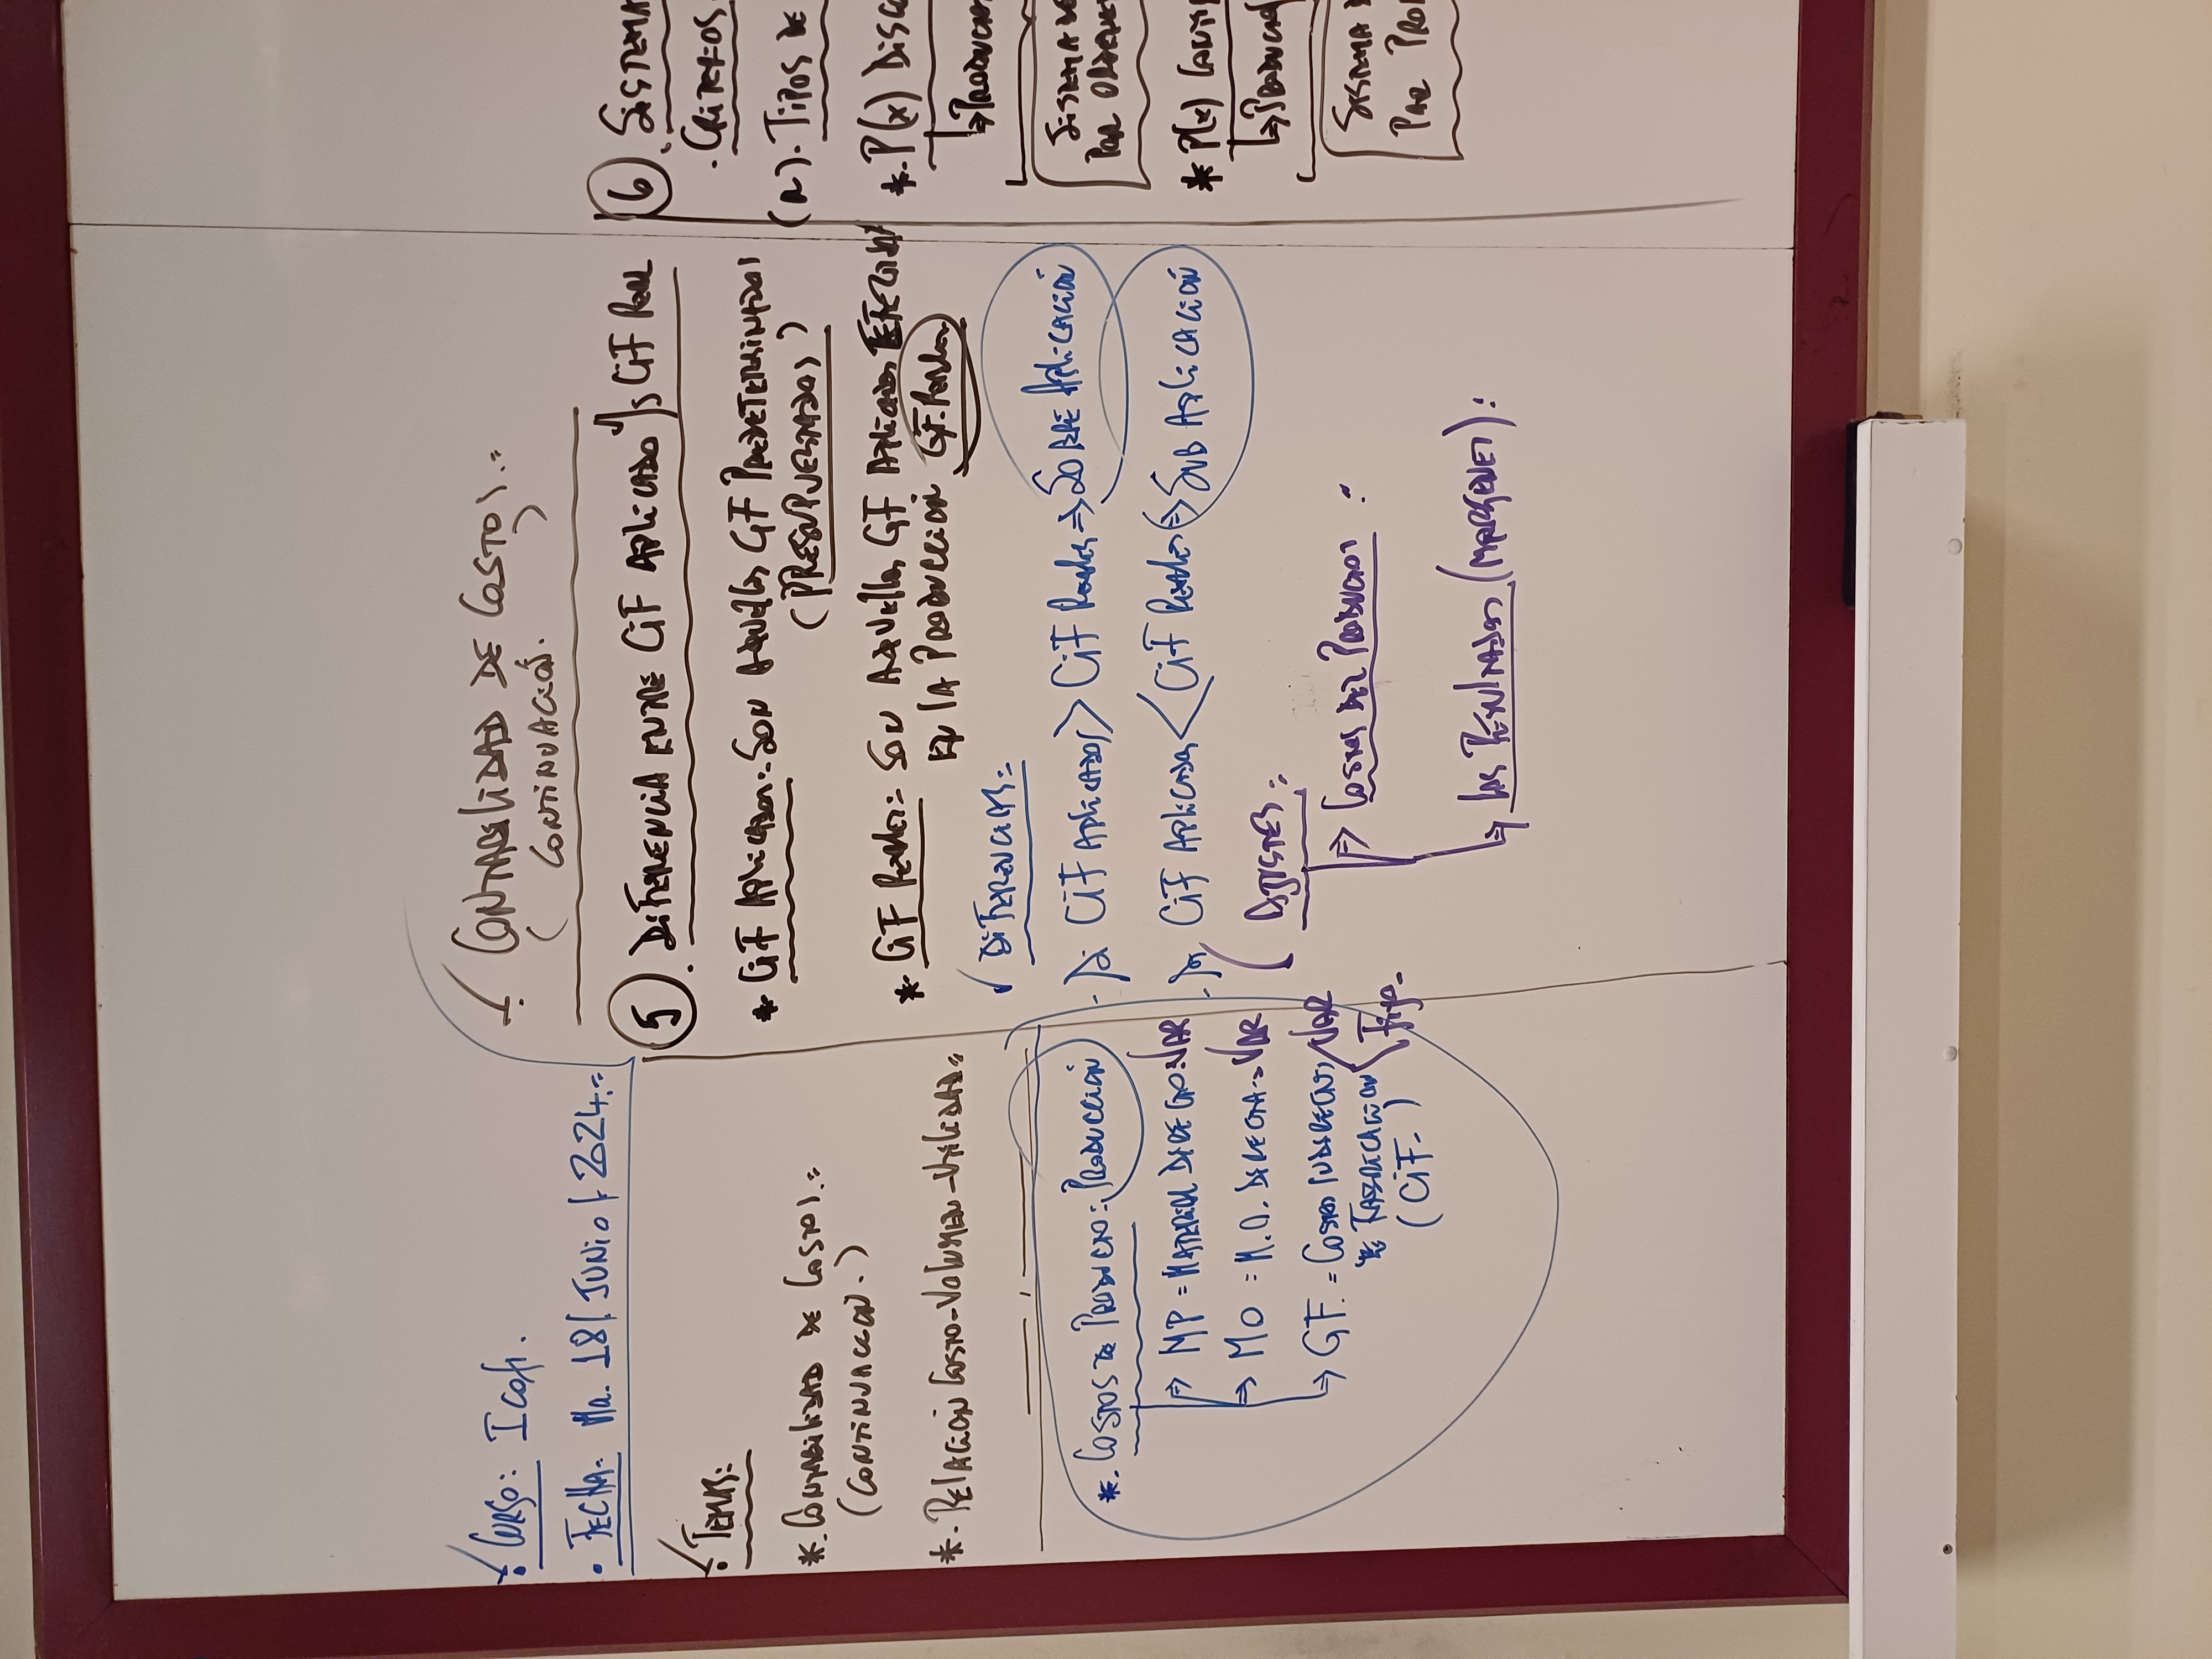 • CURSO: Icofi.
• FECHA: Ma. 18/JUNIO/2024.=
• TEMAS:
*. CONTABILIDAD DE COSTOS.=
(CONTINUACION.)
*. RELACION COSTO-VOLUMEN-UTILIDAD=
*. COSTOS DE PRODUCTO: PRODUCCIÓN
→ MP = MATERIAL DIRECTO: VAR
→ MO = M.O. DIRECTA: VAR
→ GF. = COSTOS INDIRECTOS VAR
DE FABRICACION Fijo.
(CiF.)
• CONTABILIDAD DE COSTOS.=
(CONTINUACIÓN.)
5. DIFERENCIA ENTRE CIF APLICADO V/S CIF REAL
* CIF APLICADOS:. SON AQUELLOS GF PREDETERMINADOS
(PRESUPUESTADOS)
*. GF REALES: SON AQUELLOS GF APLICADOS
EN LA PRODUCCION GF. REALES
✓ DIFERENCIAS:
. Si CIF APLICADOS > CIF REALES ⇒ SOBRE APLICACIÓN
. Si CIF APLICADOS < CIF REALES ⇒ SUB APLICACIÓN
AJUSTES:
→ COSTOS DEL PRODUCTO:
→ LOS RESULTADOS (MARGENES):
6. SISTEMA
. CRITERIOS
(A). TIPOS DE
*. P(x) DISC
→ PRODUC
SISTEMA DE
POR ORDENE
* P(x) CONTI
→ PRODUC
SISTEMA D
POR PRO